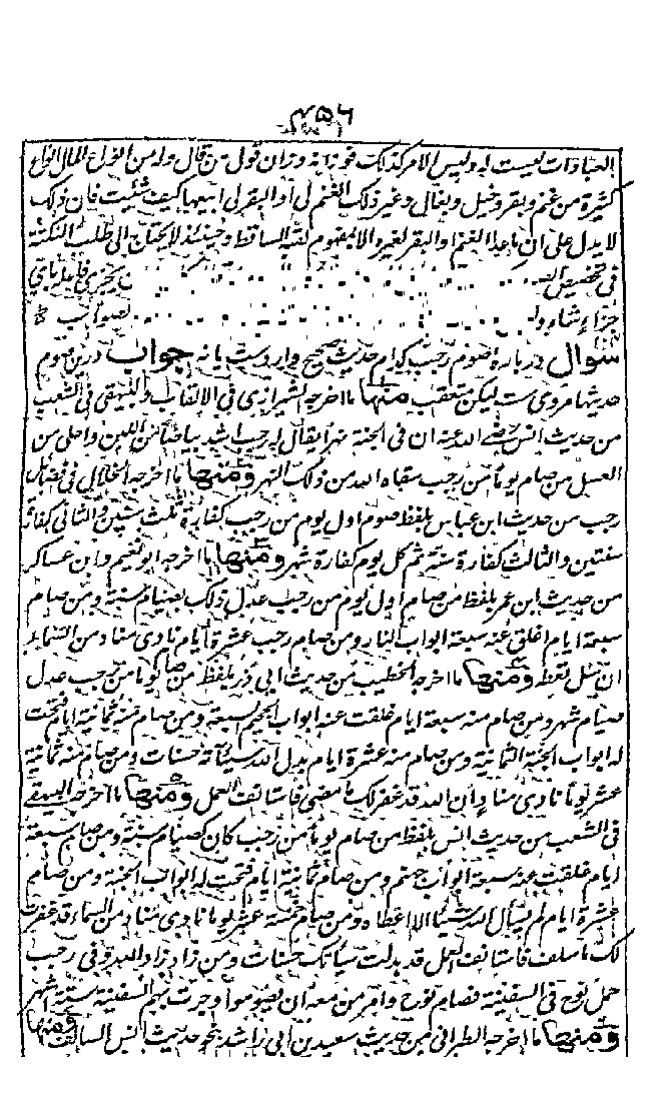 ۴۵۶
العبادات ليست له وليس الامر كذلك فوزانه وزان قولك من قال وله من انواع المال انواع
كثيرة من غنم وبقر وخيل وبغال وغير ذلك الغنم لى أو البقر لى ايهما كيف شئت فان ذلك
لا يدل على ان ما عدا الغنم والبقر لغيره الا بمفهوم لقبه الساقط وحينئذ لا يحتاج الى طلب النكتة
فى تخصيص
جزاءٍ شاء
سوال درباره صوم رجب كدام حديث صحيح وارد ست يا نه جواب درين صوم
حديثها مروى ست ليكن متعقب منها ما اخرجه الشيرازى فى الالقاب والبيهقى فى الشعب
من حديث انس رضى الله عنه ان فى الجنة نهرا يقال له رجب اشد بياضا من اللبن واحلى من
العسل من صام يوما من رجب سقاه الله من ذلك النهر ومنها ما اخرجه الخلال فى فضائل
رجب من حديث ابن عباس بلفظ صوم اول يوم من رجب كفارة ثلث سنين والثانى كفارة
سنتين والثالث كفارة سنة ثم كل يوم كفارة شهر ومنها ما اخرجه ابو نعيم وابن عساكر
من حديث ابن عمر بلفظ من صام اول يوم من رجب عدل ذلك بصيام سنة ومن صام
سبعة ايام اغلق عنه سبعة ابواب النار ومن صام من رجب عشرة ايام نادى مناد من السماء
ان سل تعطه ومنها ما اخرجه الخطيب من حديث ابى ذر بلفظ من صام يوما من رجب عدل
صيام شهر ومن صام منه سبعة ايام غلقت عنه ابواب الجحيم السبعة ومن صام منه ثمانية ايام فتحت
له ابواب الجنة الثمانية ومن صام منه عشرة ايام بدل الله سيئاته حسنات ومن صام منه ثمانية
عشر يوما نادى مناد ان الله قد غفر لك ما مضى فاستانف العمل ومنها ما اخرجه البيهقى
فى الشعب من حديث انس بلفظ من صام يوما من رجب كان كصيام سنة ومن صام سبعة
ايام غلقت عنه سبعة ابواب جهنم ومن صام ثمانية ايام فتحت له ابواب الجنة ومن صام
عشرة ايام لم يسأل الله شيئا الا اعطاه ومن صام خمسة عشر يوما نادى مناد من السماء قد غفرت
لك ما سلف فاستانف العمل قد بدلت سيأتك حسنات ومن زاد زاد الله وفى رجب
حمل نوح فى السفينة فصام نوح وامر من معه ان يصوموا وجرت بهم السفينة ستة اشهر
ومنها ما اخرجه الطبرانى من حديث سعيد بن ابى راشد نحو حديث انس السالف ومنها